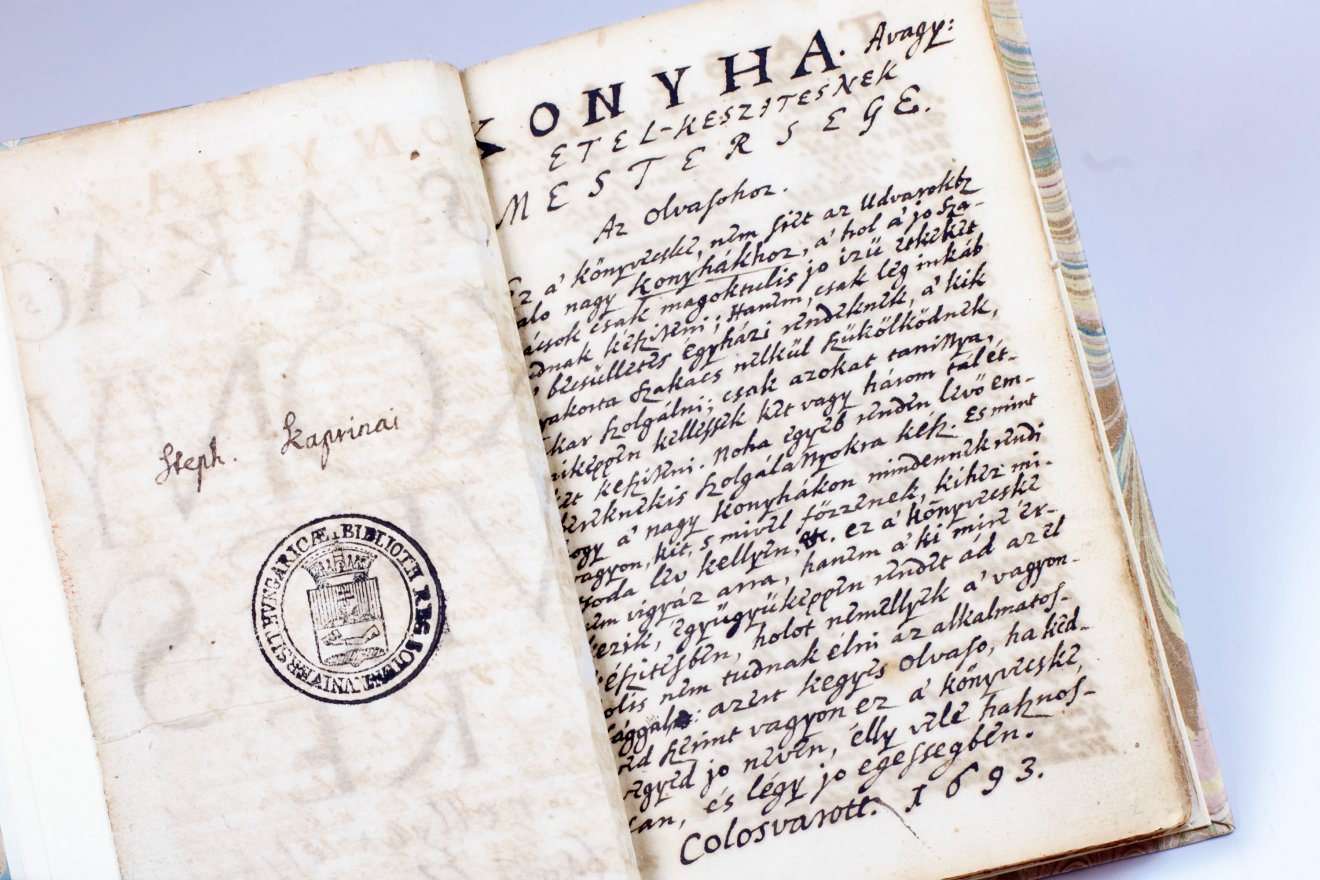 Steph. Kaprinai
BIBLIOTH. REG. SCIENT. UNIVERSIT. HUNGARICÆ
KONYHA. Avagy:
ETEL-KESZITESNEK
MESTERSEGE.
Az Olvasohoz.
Ez a' könyvecske, nem siet az Udvarokbz
nagy Konyhákhoz, a' hol a' jo Sza-
csak magoktulis jo izü etkeket
késziteni; Hanem, csak leg inkáb
böcsülletes Egyházi rendeknek, a' kik
Szakacs nelkül szükölködnek,
szolgálni; csak azokat tanittya,
miképpen kellessék két vagy három tál ét-
ket késziteni. Noha egyéb renden lévö em-
bereknekis szolgálattyokra kész. Es mint
hogy a' nagy Konyhákon mindennek rendi
vagyon, kit, s mivel fözzenek, kihez mi-
tsoda lév kellyen, &c. ez a' könyvecske
nem vigyáz arra, hanem a' ki mire ér-
kezik, együgyüképpen rendet ád az el
készitésben, holot némellyek a' vagyon-
nem tudnak élni az alkalmatos-
sággal: azért kegyes Olvaso, ha ked-
ved szerint vagyon ez a' könyvecske,
vegyed jo neven, élly vele hasznos-
san, és légy jo egessegben.
Colosvarott. 1693.